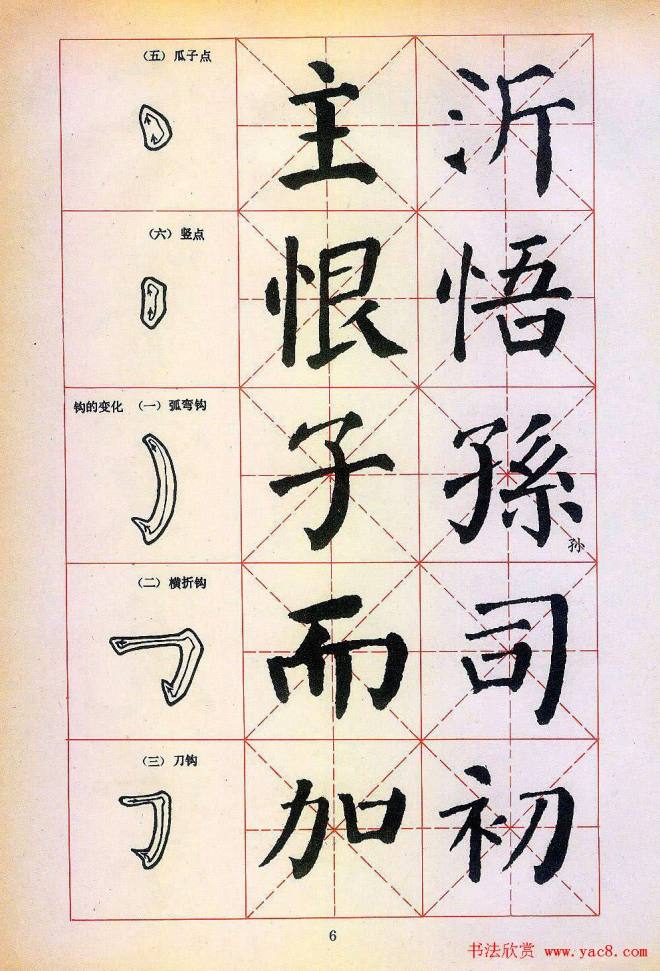 （五）瓜子点
主 沂
（六）竖点
恨 悟
钩的变化 （一）弧弯钩
子 孫
孙
（二）横折钩
而 司
（三）刀钩
加 初
6
书法欣赏 www.yac8.com